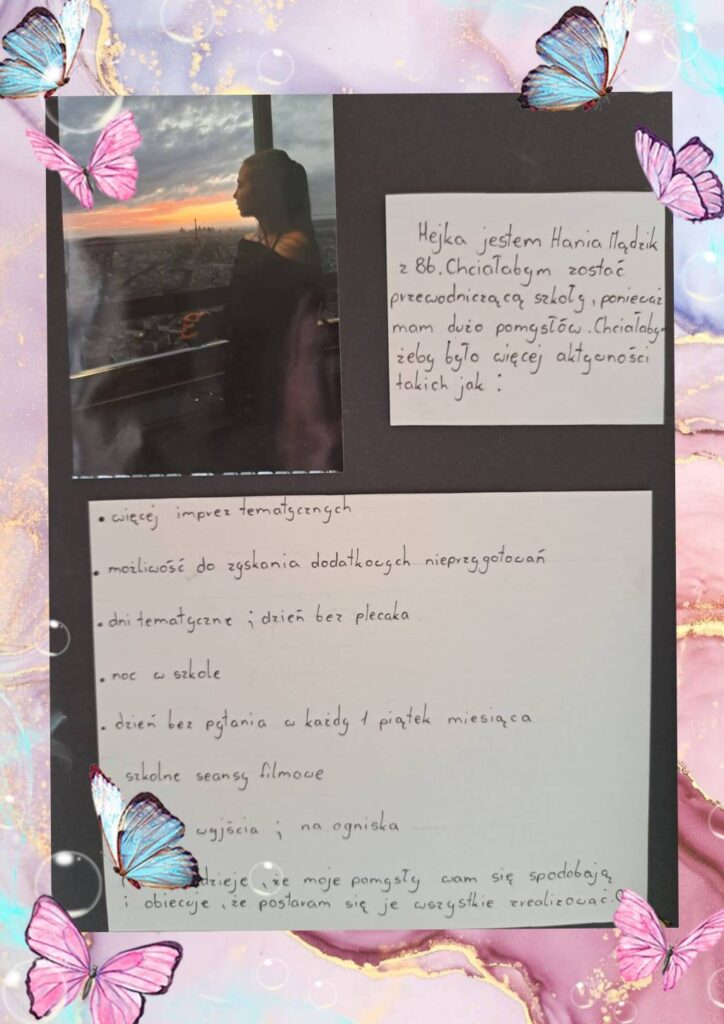 Hejka jestem Hania Mądzik
z 8b. Chciałabym zostać
przewodniczącą szkoły, ponieważ
mam dużo pomysłów. Chciałabym
żeby było więcej aktywności
takich jak :
• więcej imprez tematycznych
• możliwość do zyskania dodatkowych nieprzygotowań
• dni tematyczne ; dzień bez plecaka
• noc w szkole
• dzień bez pytania w każdy 1 piątek miesiąca
szkolne seansy filmowe
wyjścia ; na ogniska
że moje pomysły wam się spodobają
i obiecuje, że postaram się je wszystkie zrealizować.